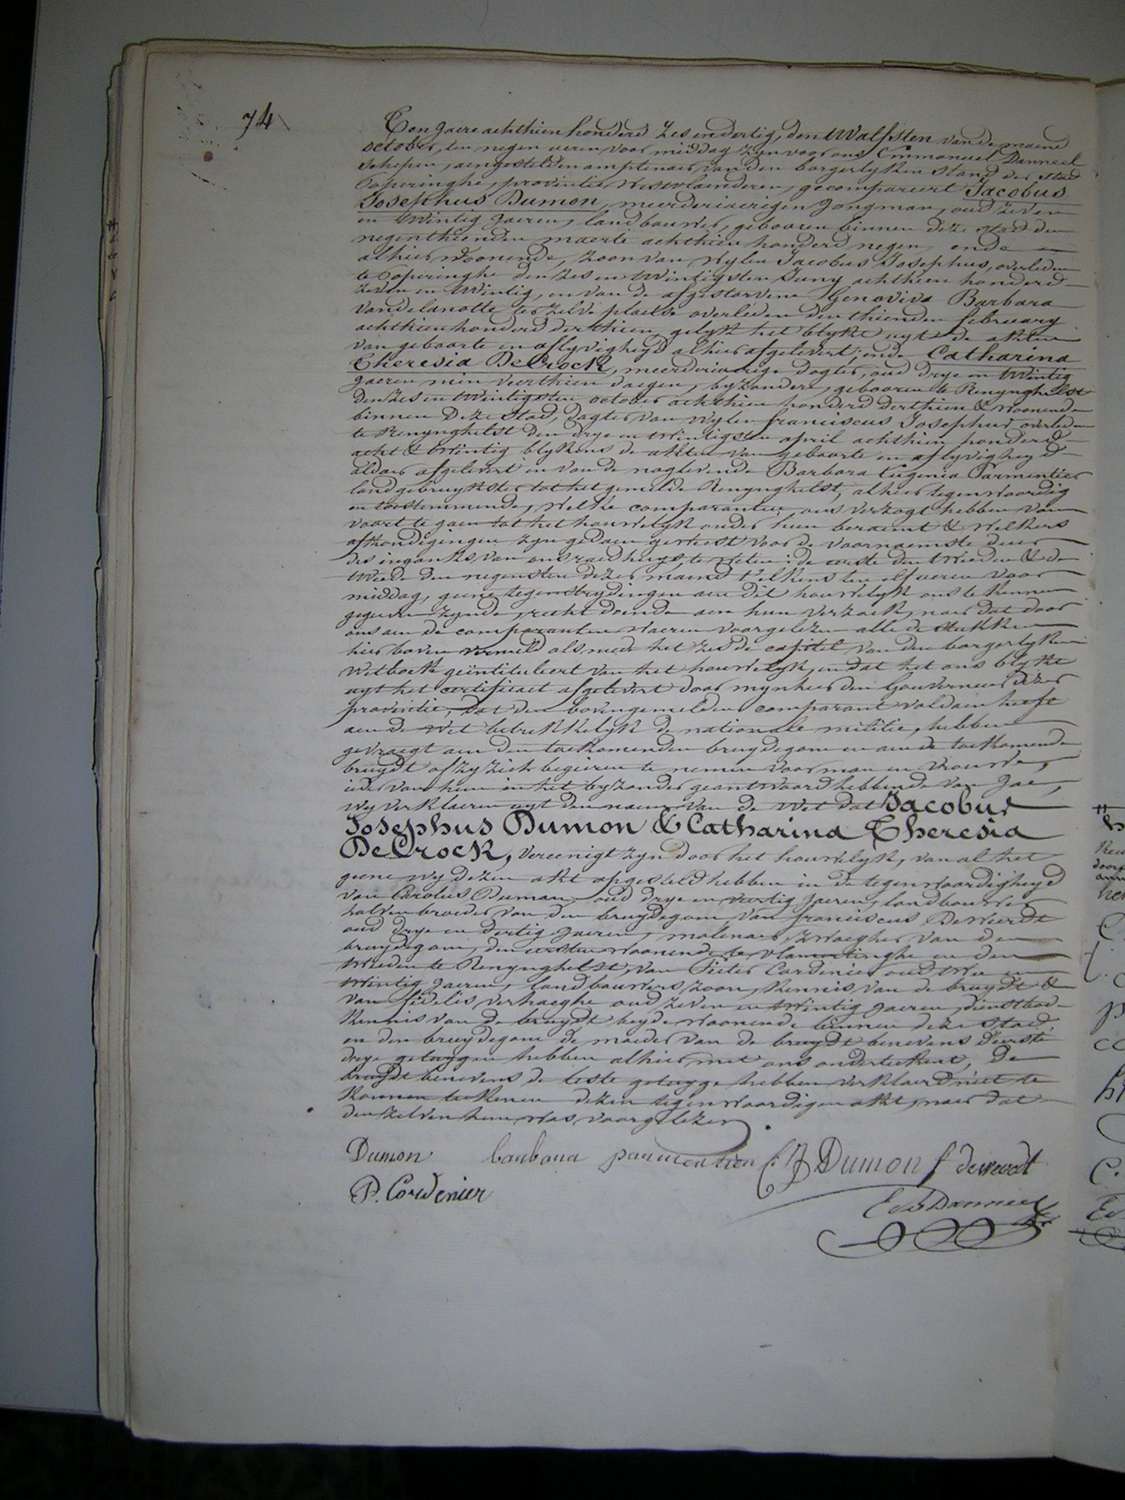 74
Ten jaere achthien honderd zes en dertig, den twalfsten van de maend
october, ten negen ueren voor middag zyn voor ons Emmanuel Danneel
schepen, aengestelden amptenaer van den borgerlyken stand der stad
Poperinghe, provintie Westvlaenderen, gecompareert Jacobus
Josephus Dumon, meerderjaerigen jongman, oud zeven
en twintig jaeren, landbouwer, gebooren binnen deze stad den
negenthienden maerte achthien honderd negen, ende
alhier woonende, zoon van wylen Jacobus Josephus, overleden
te Poperinghe den zes en twintigsten juny achthien honderd
zeven en twintig, en van de afgestorvene Genoviva Barbara
Vandelanotte ter zelve plaetse overleden den thienden february
achthien honderd derthien, gelyk het blykt uyt de akten
van geboorte en aflyvigheyd alhier afgelevert; ende Catharina
Theresia DeCrock, meerderjarige dogter, oud drye en twintig
jaeren min veerthien daegen, byzondere, gebooren te Renynghelst
den zes en twintigsten october achthien honderd derthien & woonende
binnen deze stad, dogter van wylen Franciscus Josephus, overleden
te Renynghelst den drye en twintigsten april achthien honderd
acht & twintig blykens de akten van geboorte en aflyvigheyd
aldaer afgelevert en van de naglevende Barbara Eugenia Parmentier
landgebruykster tot het gemelde Renynghelst, alhier tegenwoordig
en toestemmende, welke comparanten ons verzogt hebben van
voort te gaen tot het houwelyk onder hun beraemt & welkers
afkondigingen zyn gedaen geweest voor de voornaemste deur
des ingangs van ons raedhuys, te weten: de eerste den tweeden & de
twede den negensten dezer maend t'elkens ten elf ueren voor
middag, geene tegenstrydingen aen dit houwelyk ons te kennen
gegeven zynde, recht doende aen hun verzoek, naer dat door
ons aen de comparanten waeren voorgelezen alle de stukken
hier boven vermeld alsmede het zesde capitel van den borgerlyken
wetboek geintituleert van het houwelyk, en dat het ons blykt
uyt het certificaet afgelevert door mynheer den Gouverneur dezer
provintie, dat den bovengemelden comparant voldaen heeft
aen de wet betrekkelyk de nationale militie, hebben
gevraegt aen den toekomenden bruydegom en aen de toekomende
bruydt of zy zich begeeren te nemen voor man en vrouwe,
ieder van hun in het byzonder geantwoord hebbende van Jae,
wy verklaeren uyt den naem van de wet dat Jacobus
Josephus Dumon & Catharina Theresia
DeCrock, vereenigt zyn door het houwelyk, van al het
geene wy dezen akt opgesteld hebben in de tegenwoordigheyd
van Carolus Dumon, oud drye en veertig jaeren, landbouwer
halven broeder van den bruydegom, van Franciscus Deweerdt
oud drye en dertig jaeren, molenaer, zwaegher van den
bruydegom, den eersten woonende te Vlamertinghe en den
tweeden te Renynghelst, van Pieter Cordenier oud twee en
twintig jaeren, landbouwers zoon, kennis van de bruydt &
van Fidelis Verhaeghe oud zeven en twintig jaeren, dienstbode
kennis van de bruydt beyde woonende binnen deze stad,
en den bruydegom de moeder van de bruydt benevens d'eerste
drye getuygen hebben alhier met ons onderteekent, de
bruydt benevens de leste getuyge hebben verklaerd niet te
konnen teekenen dezen tegenwoordigen akt, naer dat
den zelven hun was voorgelezen.
Dumon barbara parmentier C. J. Dumon f deweerdt
P. Cordenier
E. Danneel